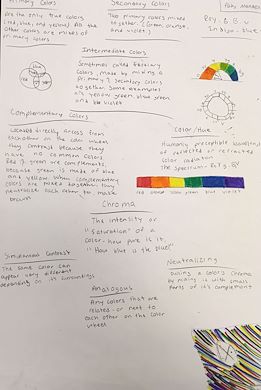 Primary Colors
are the only true colors
(red, blue, and yellow). All the
other colors are mixes of
primary colors
Secondary Colors
Two primary colors mixed
together. (Green, orange
and violet)
Intermediate Colors
Sometimes called tertiary
colors, made by mixing a
primary & secondary colors
together. Some examples
are yellow green, blue green,
and blue violet
Complementary Colors
Located directly across from
eachother on the color wheel
they contrast because they
have no common colors.
Red & green are complements,
because green is made of blue
and yellow. When complementary
colors are mixed together, they
neutralize each other to make
brown
Color/Hue
Humanly perceptible
of reflected or refracted
color radiation
The spectrum
red orange yellow green blue violet
Chroma
The intensity or
"saturation" of a
color - how pure it is.
"How blue is the blue?"
Simultaneous Contrast
The same color can
appear very different
depending on its surroundings
Neutralizing
During a colors chroma
by mixing it with small
parts of it's complement
Analogous
Any colors that are
related or next to
each other on the color
wheel